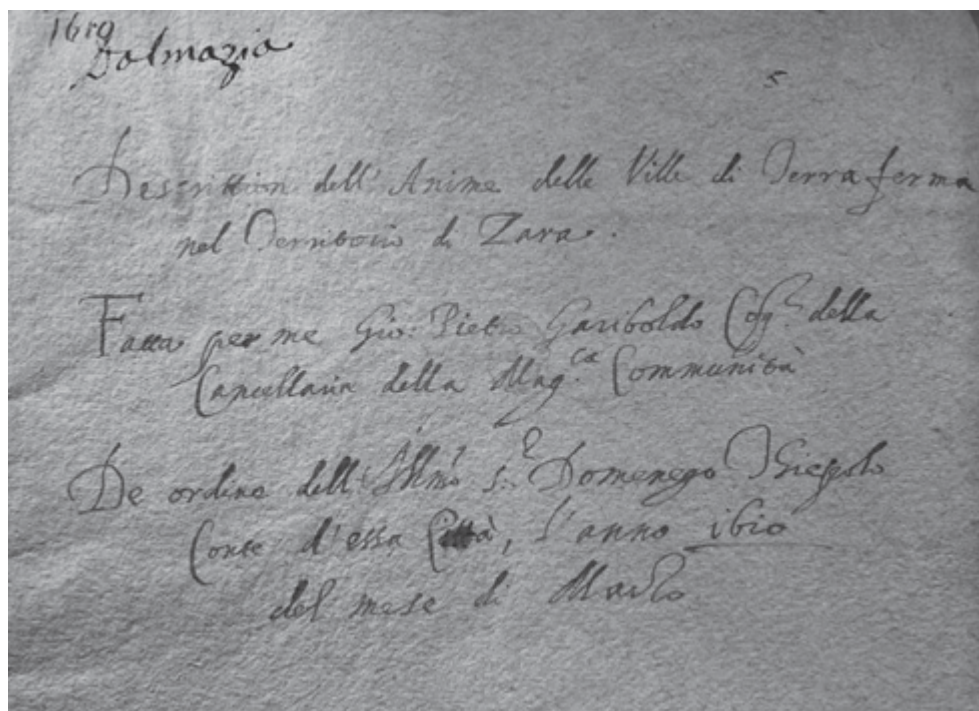 1619
Dalmazia
5
Descrittion dell' Anime delle Ville di Terra ferma
nel Territorio di Zara.
Fatta per me Gio: Pietro Gariboldo Cog.r della
Cancellaria della Mag.ca Communità
De ordine dell' Illmo S.r Domenego Thiepolo
Conte d'essa Città, l'anno 1610
del mese di Marzo